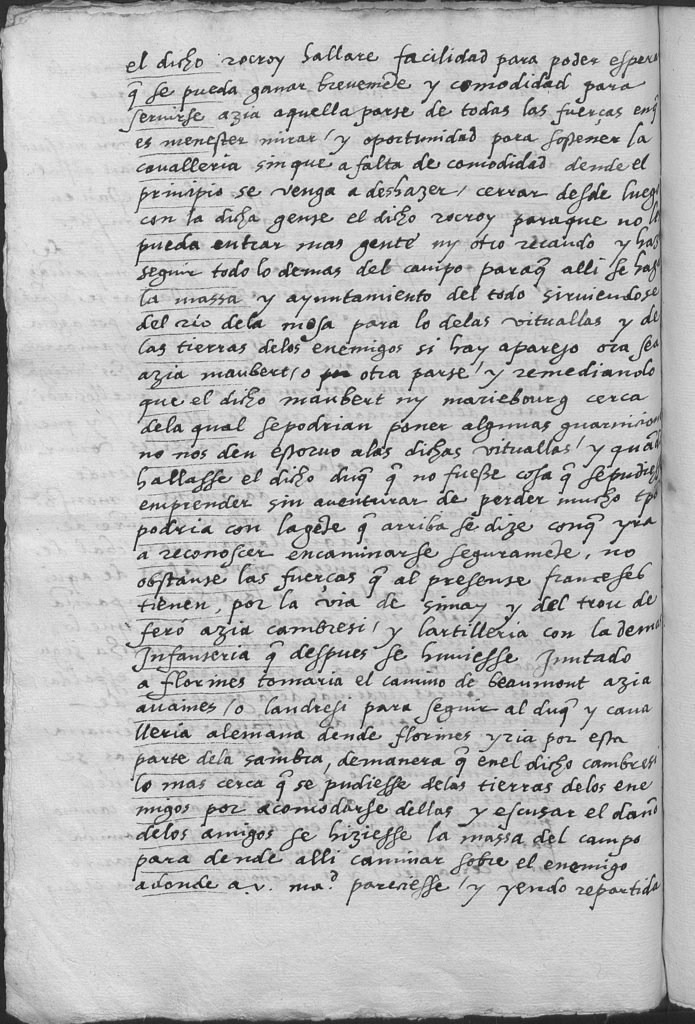 el dicho rocroy hallare facilidad para poder espera
q̃ se pueda ganar brevemẽte y comodidad para
servirse azia aquella parte de todas las fuerças en q̃
es menester mirar / y oportunidad para sostener la
cavalleria sin que a falta de comodidad dende el
principio se venga a deshazer / cerrar desde luego
con la dicha gente el dicho rocroy paraque no le
pueda entrar mas gente ny otro recaudo y haz
seguir todo lo demas del campo paraq̃ alli se haga
la massa y ayuntamiento del todo sirviendose
del rio dela mosa para lo delas vituallas y de
las tierras delos enemigos si hay aparejo ora sea
azia maubert / o otra parte / y remediando
que el dicho maubert ny mariebourg cerca
dela qual sepodrian poner algunas guarnicion
no nos den estorvo alas dichas vituallas / y quãdo
hallasse el dicho duq̃ q̃ no fuesse cosa q̃ sepudiesse
emprender sin aventurar de perder mucho tp̃o
podria con lagẽte q̃ arriba se dize conq̃ yra
a reconoscer encaminarse seguramẽte, no
obstante las fuerças q̃ al presente franceses
tienen, por la via de simay y del trou de
feró azia cambresi / y lartilleria con la demas
Infanteria q̃ despues se huviesse Juntado
a florines tomaria el camino de beaumont azia
avaines / o landresi para seguir al duq̃ y cava
lleria alemana dende florines yria por esta
parte dela sambra, demanera q̃ enel dicho cambresi
lo mas cerca q̃ se pudiesse delas tierras delos ene
migos por acomodarse dellas y escusar el daño
delos amigos se hiziesse la massa del campo
para dende alli caminar sobre el enemigo
adonde a .v. ma.d pareciesse / y yendo repartida